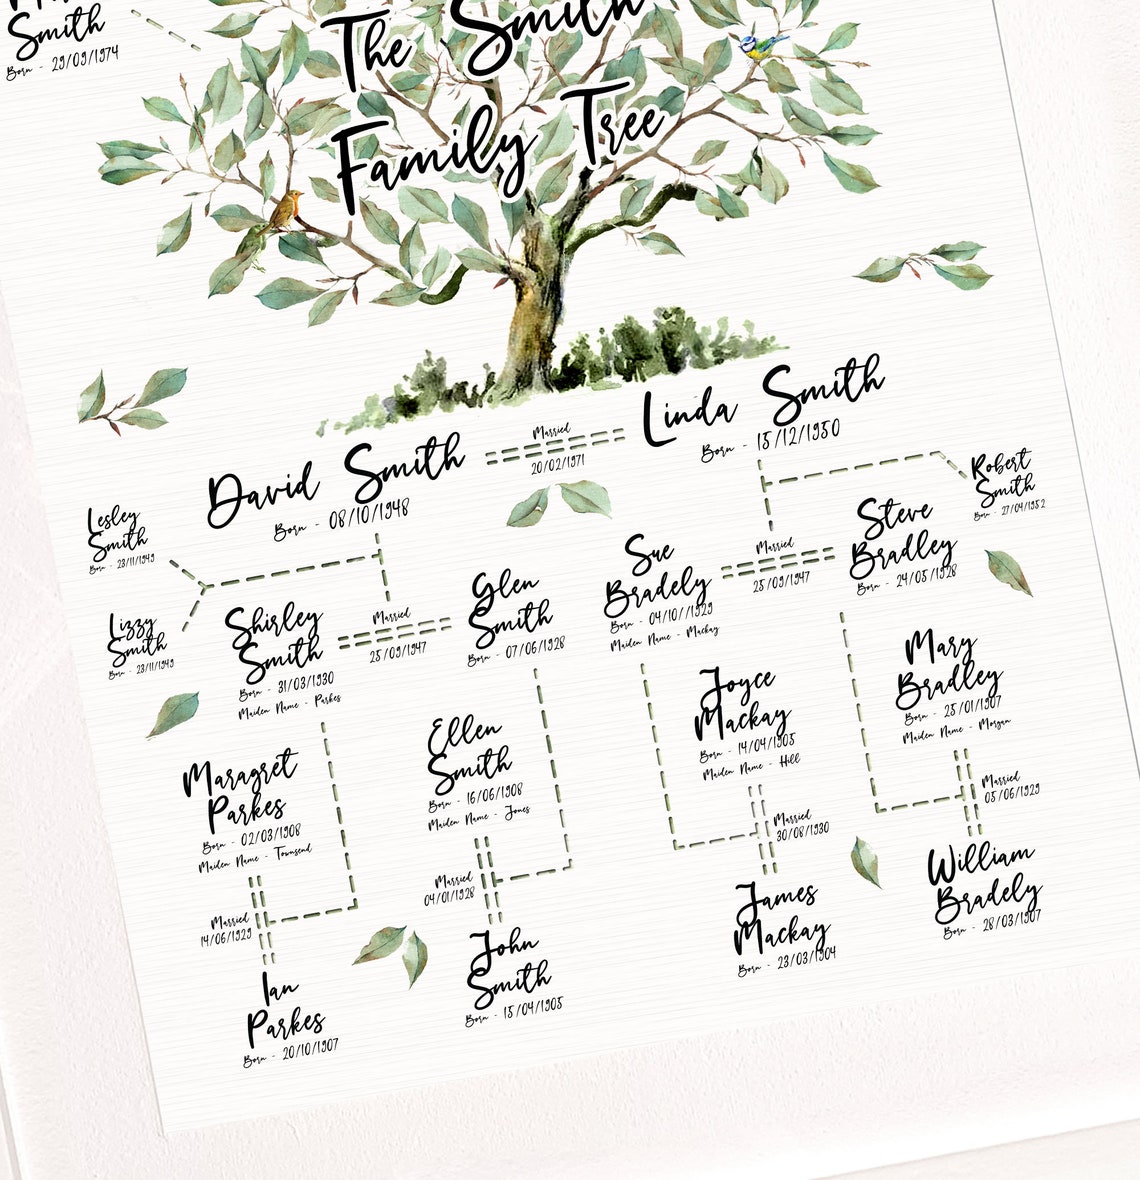 Smith
Born - 29/09/1974
The Smith
Family Tree
David Smith
Born - 08/10/1948
Married
20/02/1971
Linda Smith
Born - 15/12/1950
Lesley
Smith
Born - 23/11/1949
Lizzy
Smith
Born - 23/11/1949
Robert
Smith
Born - 27/04/1952
Shirley
Smith
Born - 31/03/1930
Maiden Name - Parkes
Married
25/09/1947
Glen
Smith
Born - 07/06/1928
Sue
Bradely
Born - 04/10//1929
Maiden Name - Mackay
Married
25/09/1947
Steve
Bradley
Born - 24/05/1928
Maragret
Parkes
Born - 02/03/1908
Maiden Name - Townsend
Married
14/06/1929
Ian
Parkes
Born - 20/10/1907
Ellen
Smith
Born - 16/06/1908
Maiden Name - Jones
Married
04/01/1928
John
Smith
Born - 15/04/1905
Joyce
Mackay
Born - 14/04/1905
Maiden Name - Hill
Married
30/08/1930
James
Mackay
Born - 23/03/1904
Mary
Bradley
Born - 25/01/1907
Maiden Name - Morgan
Married
05/06/1929
William
Bradely
Born - 28/03/1907